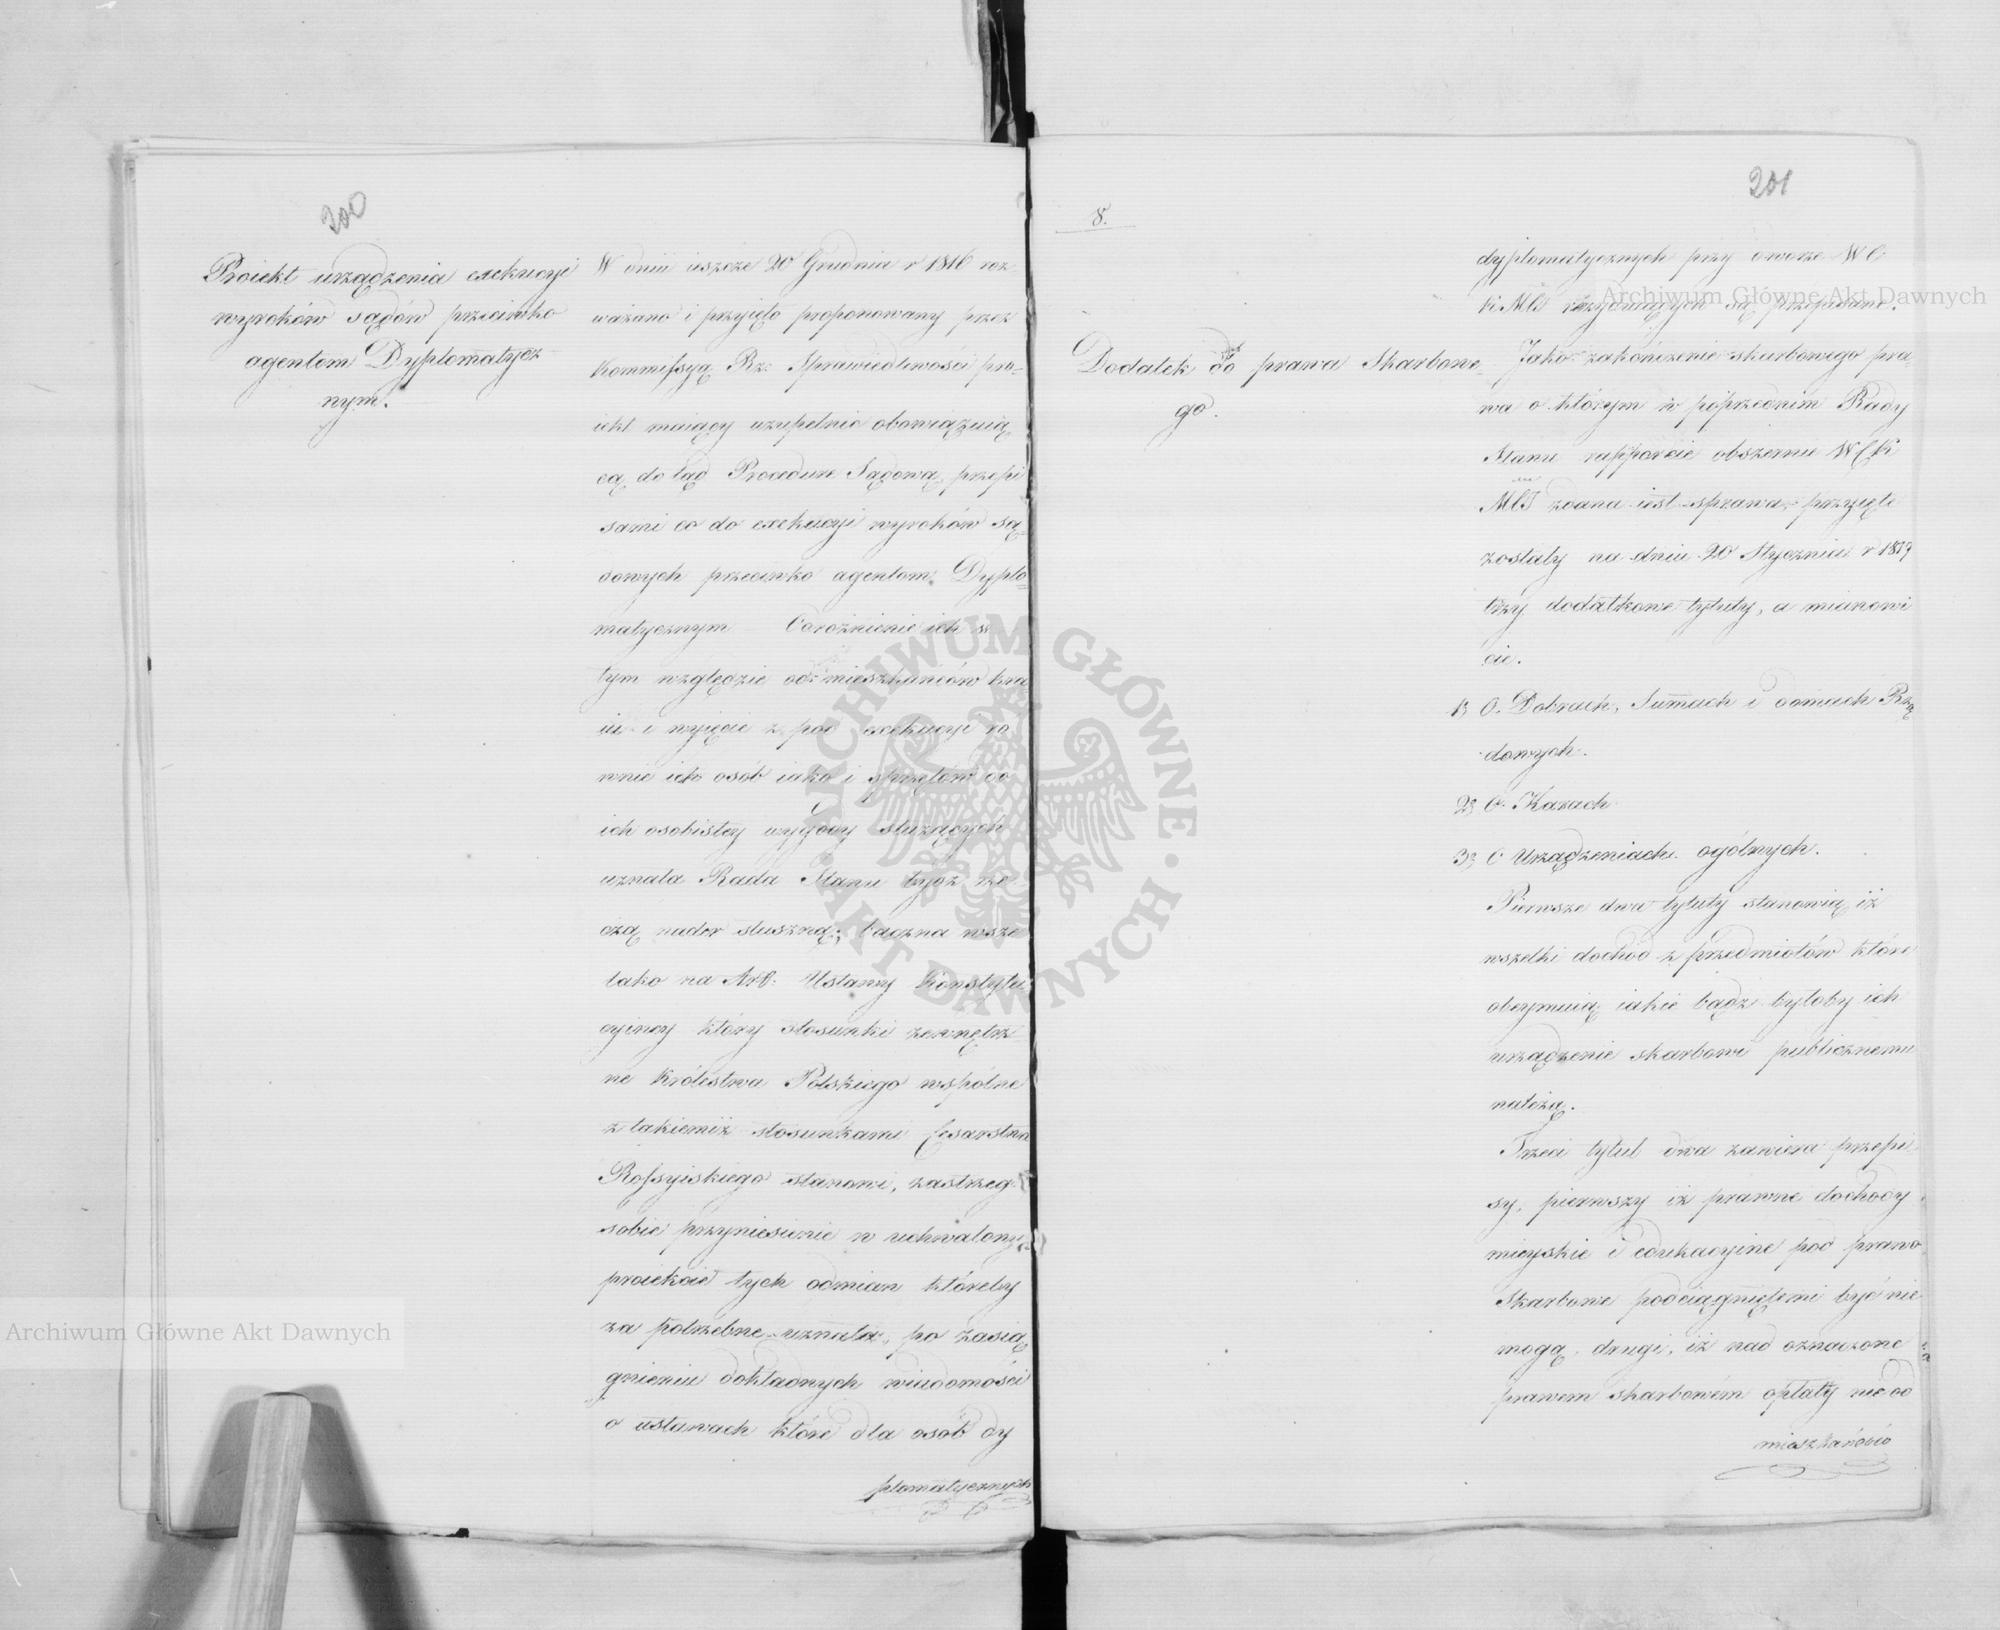 200
Proiekt urządzenia exekucyi
wyroków sądów przeciwko
agentom Dyplomatycz
nym.
W dniu ieszcze 20 Grudnia r 1816 roz
ważano i przyięto proponowany przez
Kommissyą Rz: Sprawiedliwosci pro-
iekt maiący uzupełnić obowiązuią
cą do tąd Procedurę Sądową przepi
sami co do exekucyi wyroków są-
dowych przeciwko agentom Dyplo-
matycznym Odróżnienie ich w
tym względzie od mieszkańców kra
iu i wyięcie z pod exekucyi ró
wnie ich osób iako i sprzętów do
ich osobistey wygody służących
uznała Rada Stanu bydź rze-
czą nader słuszną; baczna wsze
lako na Art: Ustawy Konstytu
cyiney który stosunki zewnętrz
ne Królestwa Polskiego wspólne
z takiemiż stosunkami Cesarstwa
Rossyiskiego stanowi, zastrzeg
sobie przyniesienie w uchwalony
proiekcie tych odmian któreby
za potrzebne uznała, po zasią
gnieniu dokładnych wiadomości
o ustawach które dla osób dy
plomatycznych
201
8.
Dodatek do prawa Skarbowe
go.
dyplomatycznych przy dworze W C
K Mći rezyduiących są przepisane.
Jako zakończenie skarbowego pra-
wa o którym w poprzednim Rady
Stanu rapporcie obszernie W C K
Mći zdana iest sprawa, przyięte
zostały na dniu 20 Stycznia r 1817
trzy dodatkowe tytuły, a mianowi
cie.
1, O Dobrach, Summach i domach Rzą
dowych.
2, O Karach
3, O Urządzeniach ogólnych.
Pierwsze dwa tytuły stanowią iż
wszelki dochód z przedmiotów które
obeymuią iakie bądź byłoby ich
urządzenie skarbowi publicznemu
należą.
Trzeci tytuł dwa zawiera przepi
sy, pierwszy iż prawne dochody
mieyskie i edukacyine pod prawo
Skarbowe podciągniętemi być nie
mogą, drugi, iż nad oznaczone
prawem skarbowém opłaty nic od
mieszkańców
Archiwum Główne Akt Dawnych
Archiwum Główne Akt Dawnych
ARCHIWUM GŁÓWNE · AKT DAWNYCH ·